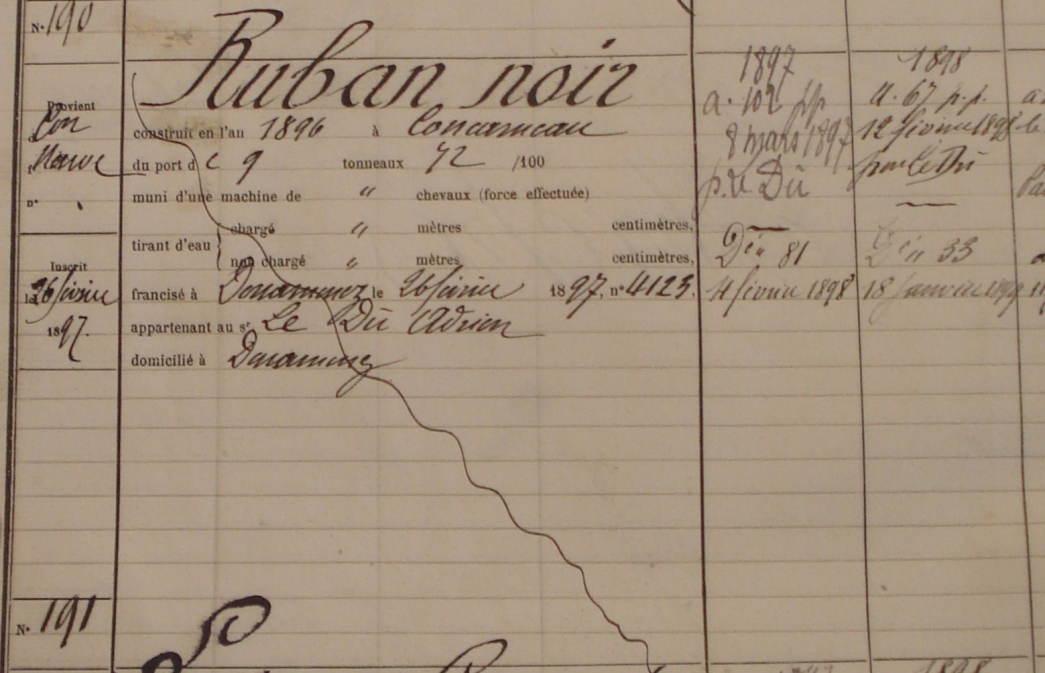 N° 190
Ruban noir
Provient
Con
Neuve
n°
construit en l'an 1896 à Concarneau
du port de 9 tonneaux 72 /100
muni d'une machine de " chevaux (force effectuée)
tirant d'eau { chargé " mètres centimètres,
non chargé " mètres centimètres,
Inscrit
le 26 février
1897.
francisé à Douarnenez le 26 février 1897, n° 4123,
appartenant au sr Le Dû Adrien
domicilié à Douarnenez
1897
a. 102 pp
8 mars 1897
p. Le Dû
Dén 81
4 février 1898
1898
a. 67 p.p.
12 février 1898
par Le Dû
Dén 33
18 janvier 1899
N° 191
1898